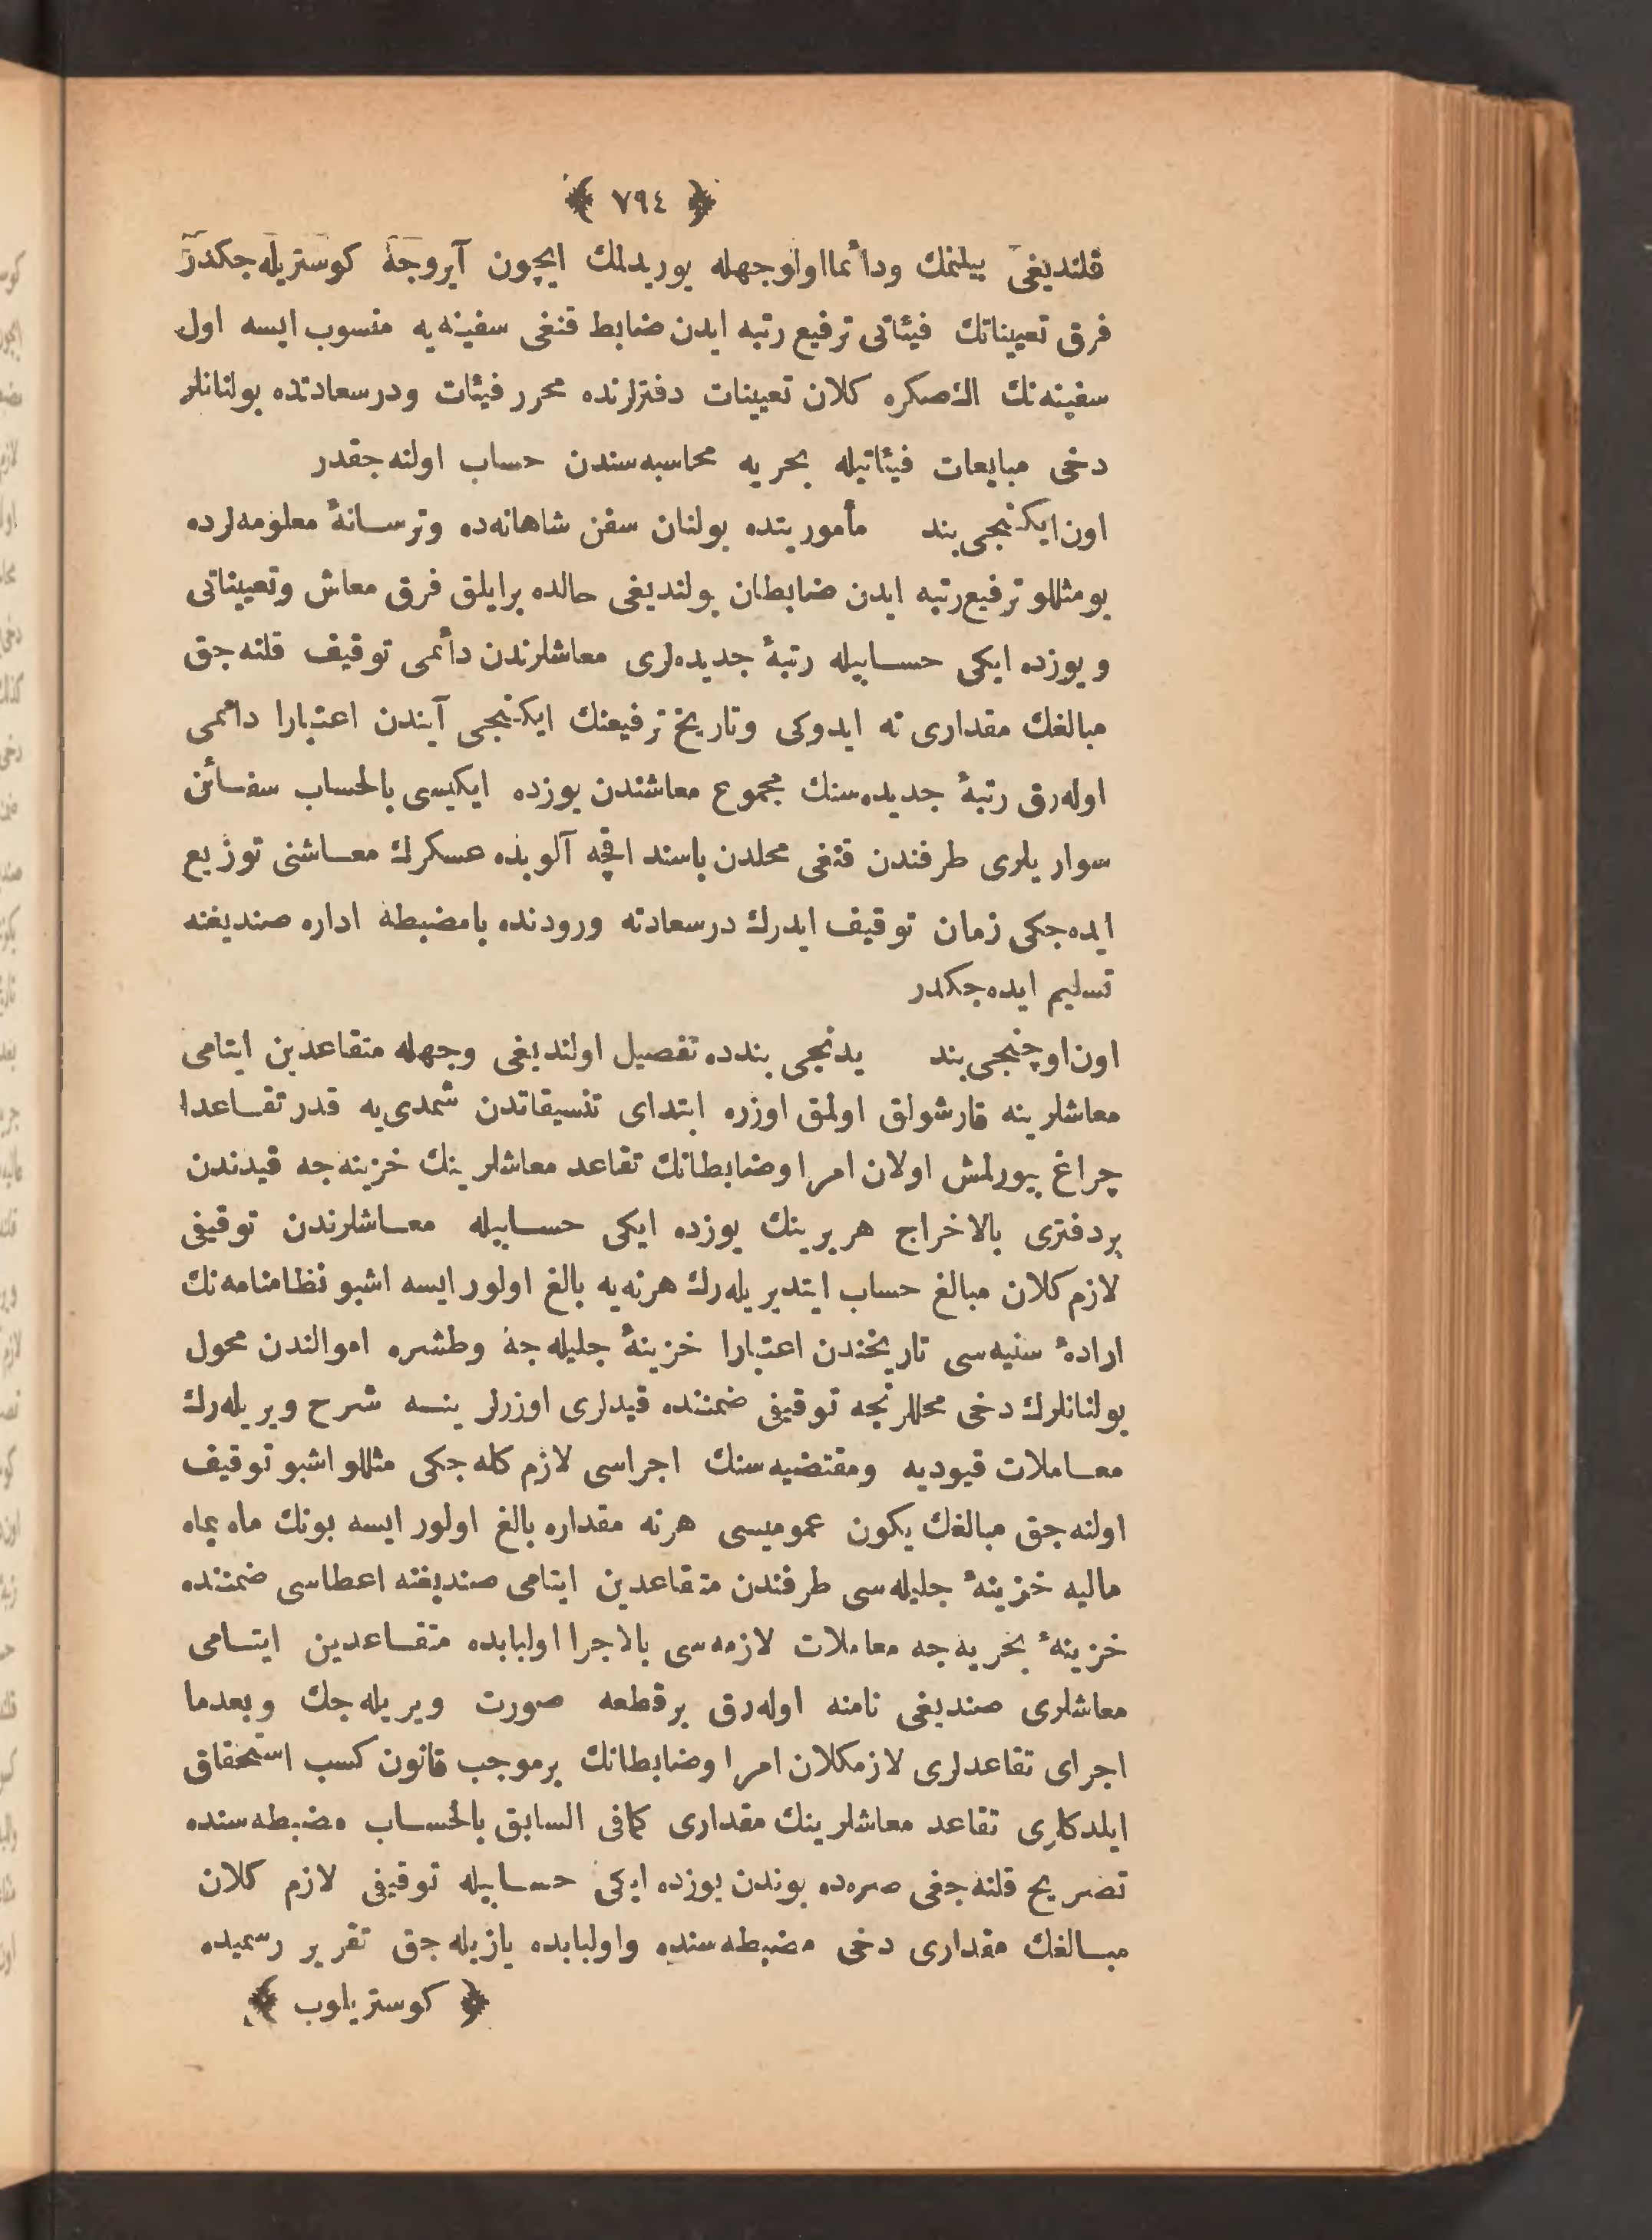 ﴿ ٧٩٤ ﴾
قلنديغى بيلنمك ودائما اولوجهله يوريدلمك ايچون آيروجه كوستريله جكدر
فرق تعييناتك فيئاتى ترفيع رتبه ايدن ضابط قنغى سفينه يه منسوب ايسه اول
سفينه نك الكصكره كلان تعيينات دفترلرنده محرر فيئات ودرسعادتده بولنانلر
دخى مبايعات فيئاتيله بحريه محاسبه سندن حساب اولنه جقدر
اون ايكنجى بند مأموريتده بولنان سفن شاهانه ده وترسانۀ معلومه لرده
بومثللو ترفيع رتبه ايدن ضابطان بولنديغى حالده برايلق فرق معاش وتعييناتى
ويوزده ايكى حسابيله رتبۀ جديده لرى معاشلرندن دائمى توقيف قلنه جق
مبالغك مقدارى نه ايدوكى وتاريخ ترفيعنك ايكنجى آيندن اعتبارا دائمى
اوله رق رتبۀ جديده سنك مجموع معاشندن يوزده ايكيسى بالحساب سفائن
سواريلرى طرفندن قنغى محلدن باسند اقچه آلوبده عسكرك معاشنى توزيع
ايده جكى زمان توقيف ايدرك درسعادته ورودنده بامضبطه اداره صنديغنه
تسليم ايده جكدر
اون اوچنجى بند يدنجى بندده تفصيل اولنديغى وجهله متقاعدين ايتامى
معاشلرينه قارشولق اولمق اوزره ابتداى تنسيقاتدن شمدى يه قدر تقاعدا
چراغ بيورلمش اولان امرا وضابطانك تقاعد معاشلرينك خزينه جه قيدندن
بردفترى بالاخراج هربرينك يوزده ايكى حسابيله معاشلرندن توقيفى
لازم كلان مبالغ حساب ايتديريله رك هرنه يه بالغ اولور ايسه اشبو نظامنامه نك
ارادۀ سنيه سى تاريخندن اعتبارا خزينۀ جليله جه وطشره اموالندن محول
بولنانلرك دخى محللرنجه توقيفى ضمننده قيدلرى اوزرلرينه شرح ويريله رك
معاملات قيوديه ومقتضيه سنك اجراسى لازم كله جكى مثللو اشبو توقيف
اولنه جق مبالغك يكون عموميسى هرنه مقداره بالغ اولور ايسه بونك ماه بماه
ماليه خزينۀ جليله سى طرفندن متقاعدين ايتامى صنديغنه اعطاسى ضمننده
خزينۀ بحريه جه معاملات لازمه سى بالاجرا اولبابده متقاعدين ايتامى
معاشلرى صنديغى نامنه اوله رق برقطعه صورت ويريله جك وبعدما
اجراى تقاعدلرى لازمكلان امرا وضابطانك برموجب قانون كسب استحقاق
ايلدكلرى تقاعد معاشلرينك مقدارى كمافى السابق بالحساب مضبطه سنده
تصريح قلنه جغى صره ده بوندن يوزده ايكى حسابيله توقيفى لازم كلان
مبالغك مقدارى دخى مضبطه سنده واولبابده يازيله جق تقرير رسميده
﴿ كوستريلوب ﴾